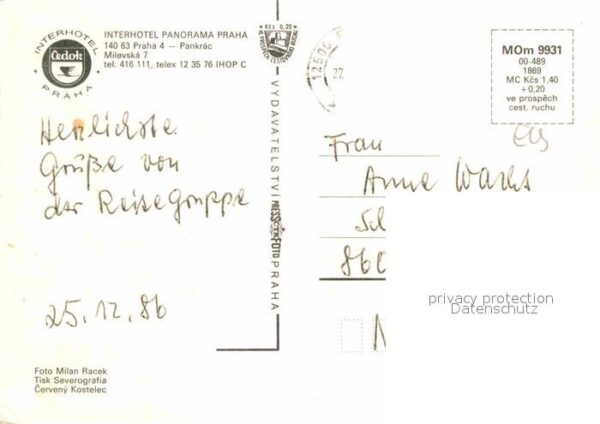 INTERHOTEL
Čedok
PRAHA
INTERHOTEL PANORAMA PRAHA
140 63 Praha 4 — Pankrác
Milevská 7
tel. 416 111, telex 12 35 76 IHOP C
Kčs 0,20
VYDAVATELSTVÍ PRESSFOTO PRAHA
MOm 9931
00-489
1869
MC Kčs 1,40
+0,20
ve prospěch
cest. ruchu
Herzlichste
Grüße von
der Reisegruppe
25.12.86
Frau
Anne
860
privacy protection
Datenschutz
Foto Milan Racek
Tisk Severografia
Červený Kostelec